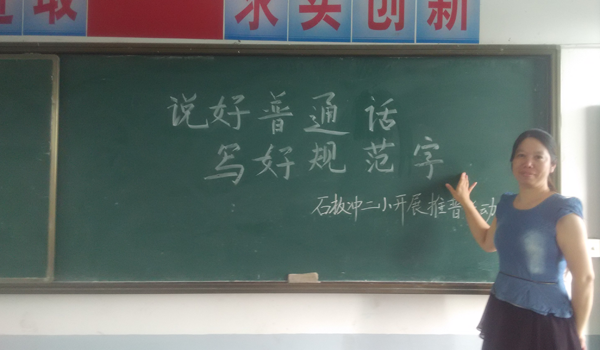 取 求实创新
说好普通话
写好规范字
石板冲二小开展推普活动